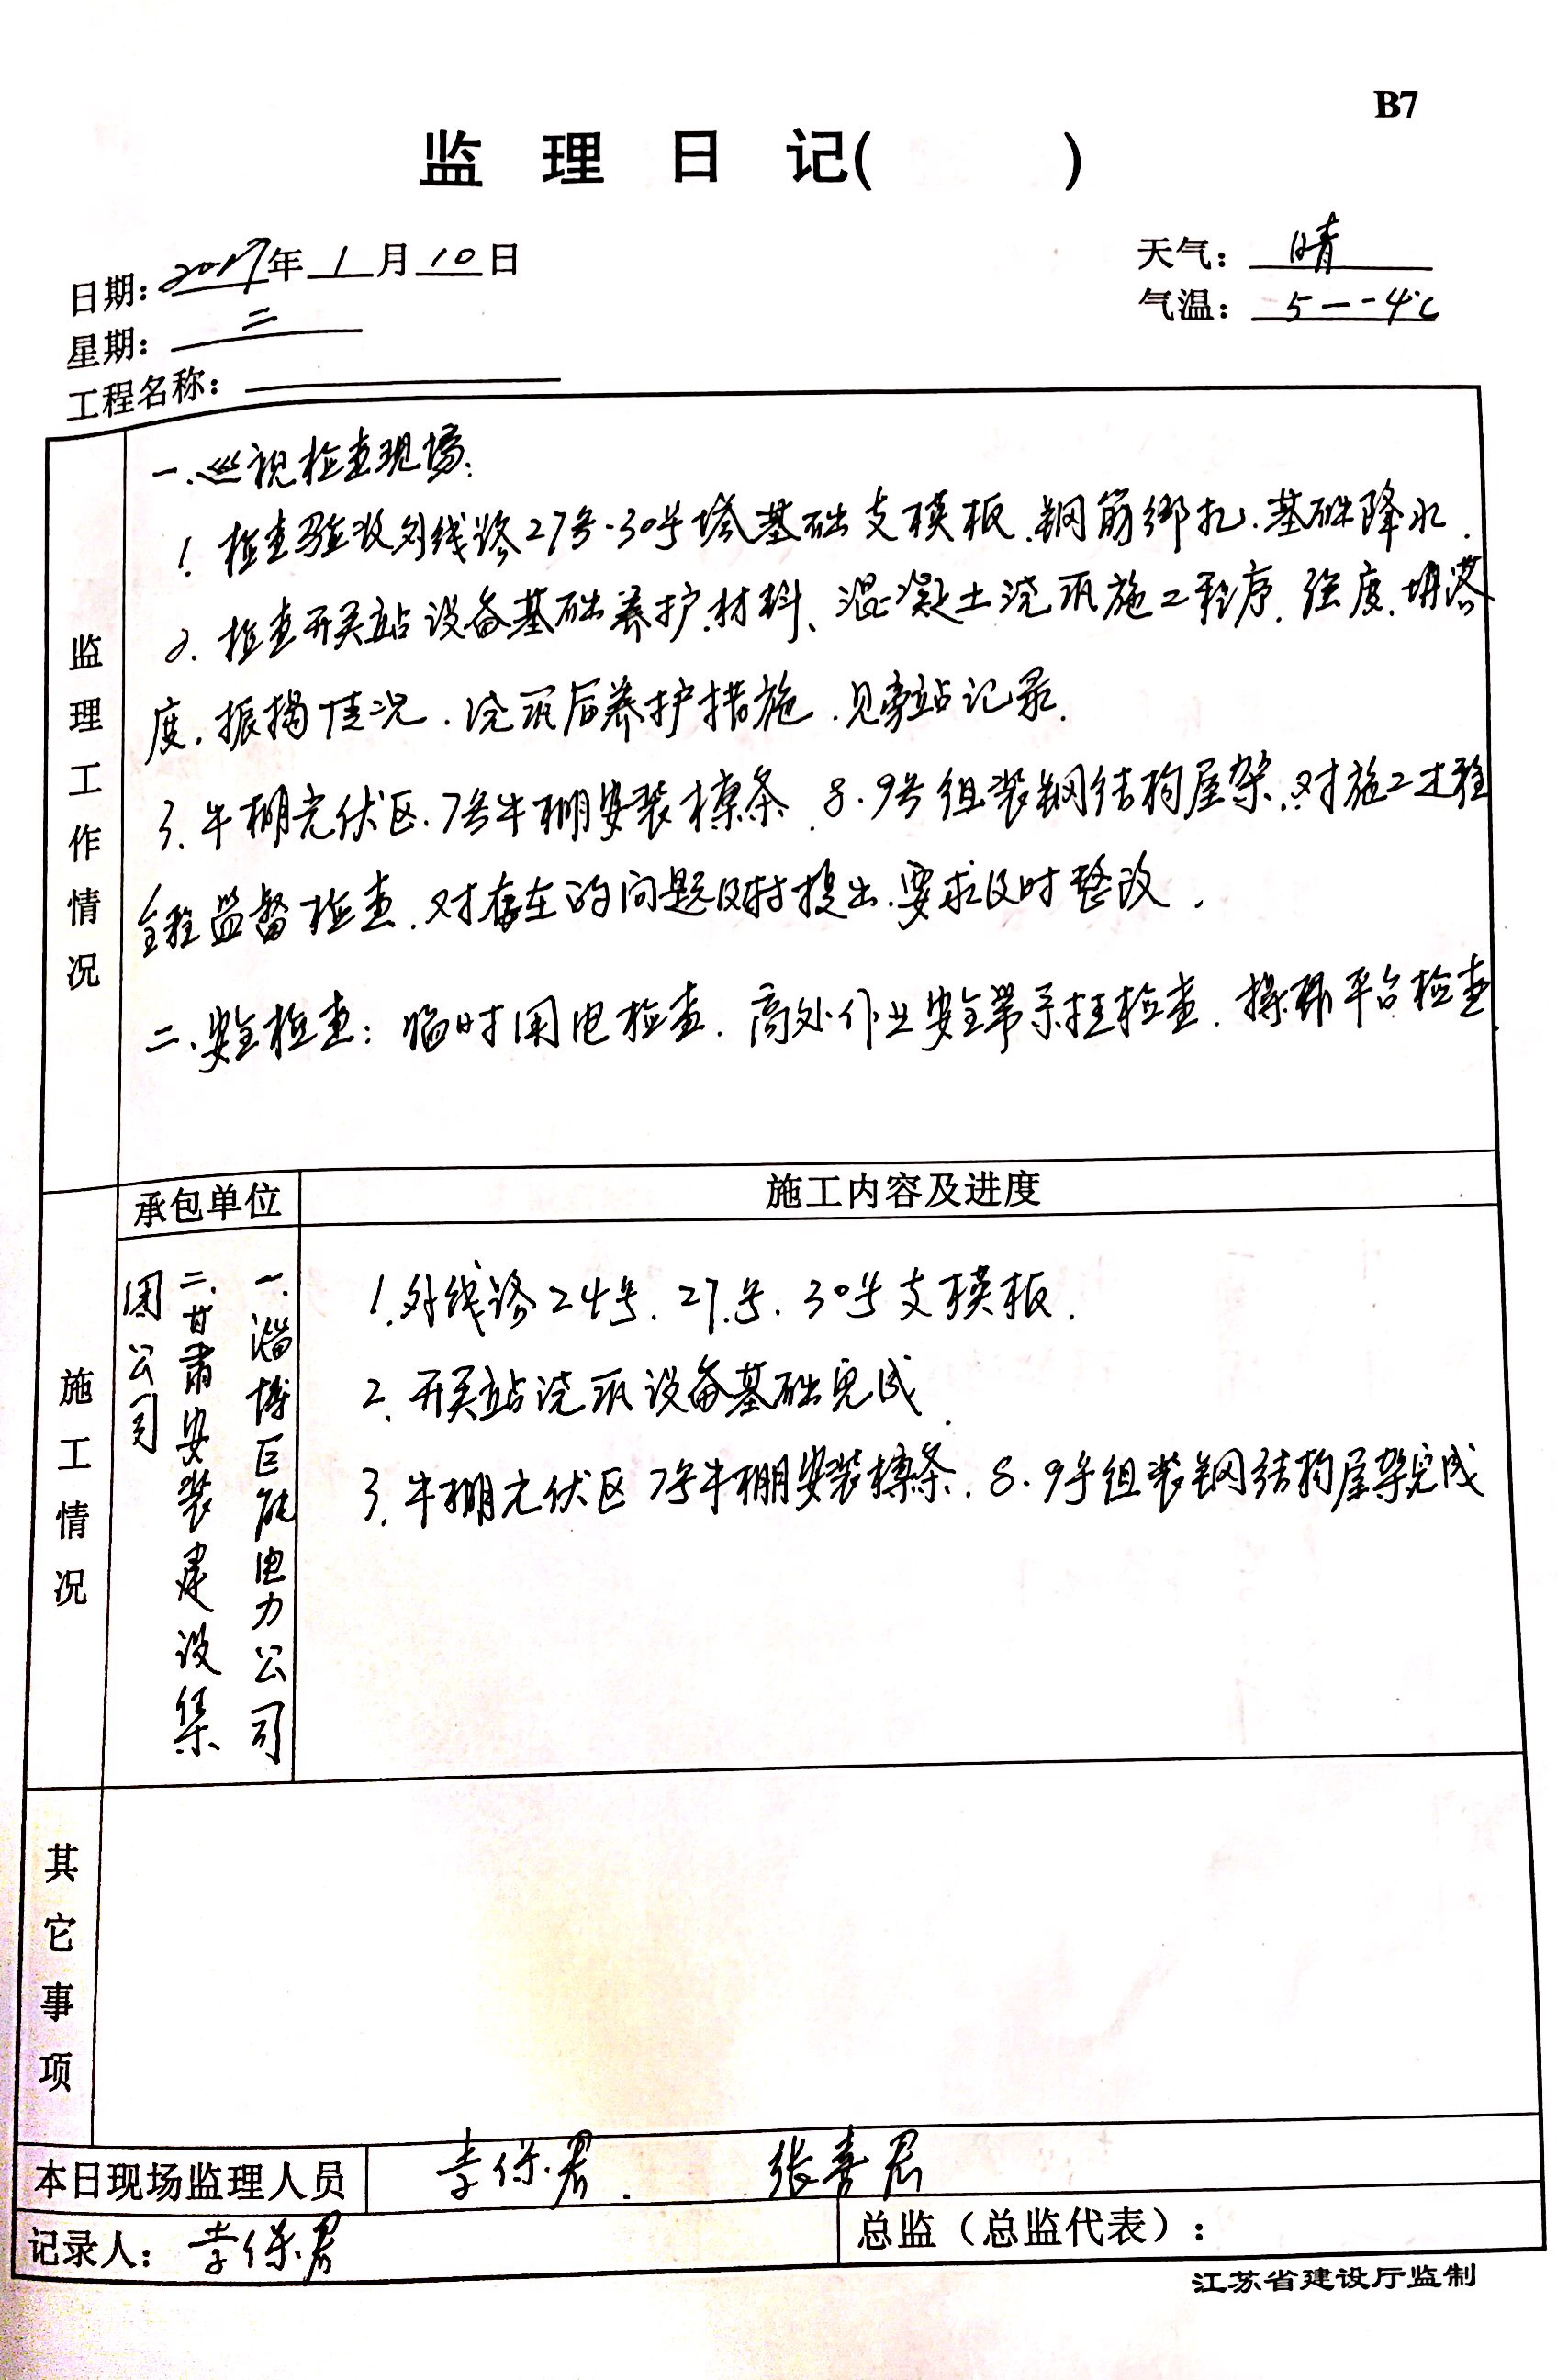 B7
监理日记(    )
日期:2017年1月10日
天气:晴
星期:二
气温:5--4℃
工程名称:
监理工作情况
一.巡视检查现场:
1.检查验收外线路27号.30号塔基础支模板.钢筋绑扎.基础降水.
2.检查开关站设备基础养护.材料、混凝土浇筑施工程序.强度.坍落
度.振捣情况.浇筑后养护措施.见旁站记录.
3.牛棚光伏区.7号牛棚安装檩条.8.9号组装钢结构屋架.对施工过程
全程监督检查.对存在的问题及时提出.要求及时整改.
二、安全检查:临时用电检查.高处作业安全带系挂检查.操作平台检查.
承包单位
施工内容及进度
施工情况
一.淄博巨能电力公司
二.甘肃安装建设集
团公司
1.外线路24号.27.号.30号支模板.
2.开关站浇筑设备基础完成.
3.牛棚光伏区7号牛棚安装檩条.8.9号组装钢结构屋架完成
其它事项
本日现场监理人员
李保君. 张喜君
记录人:李保君
总监(总监代表):
江苏省建设厅监制